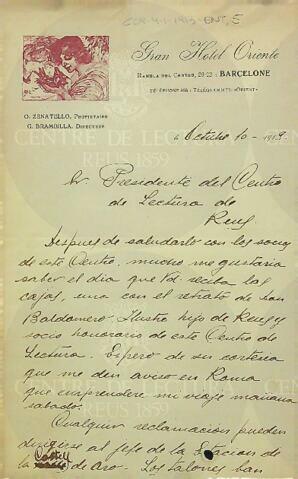 Gran Hotel Oriente
RAMBLA DEL CENTRO, 20-22 - BARCELONE
O. ZENATELLO, PROPIETARIO
G. BRAMBILLA, DIRECTOR
Octubre 10 - 1913
Sr. Presidente del Centro
de Lectura de
Reus
Despues de saludarlo con los
de este Centro, mucho me gustaria
saber el dia que Vd reciba las
cajas, una con el retrato de
Baldomero Ilustre hijo de Reus y
socio honorario de este Centro de
Lectura. Espero de su cortesia
que me den aviso en Roma
que emprendere mi viaje mañana
sabado.
Cualquier reclamacion pueden
dirigirse al jefe de la Estacion de
de Aro. Los talones han
CENTRE DE LECTURA
REUS 1859